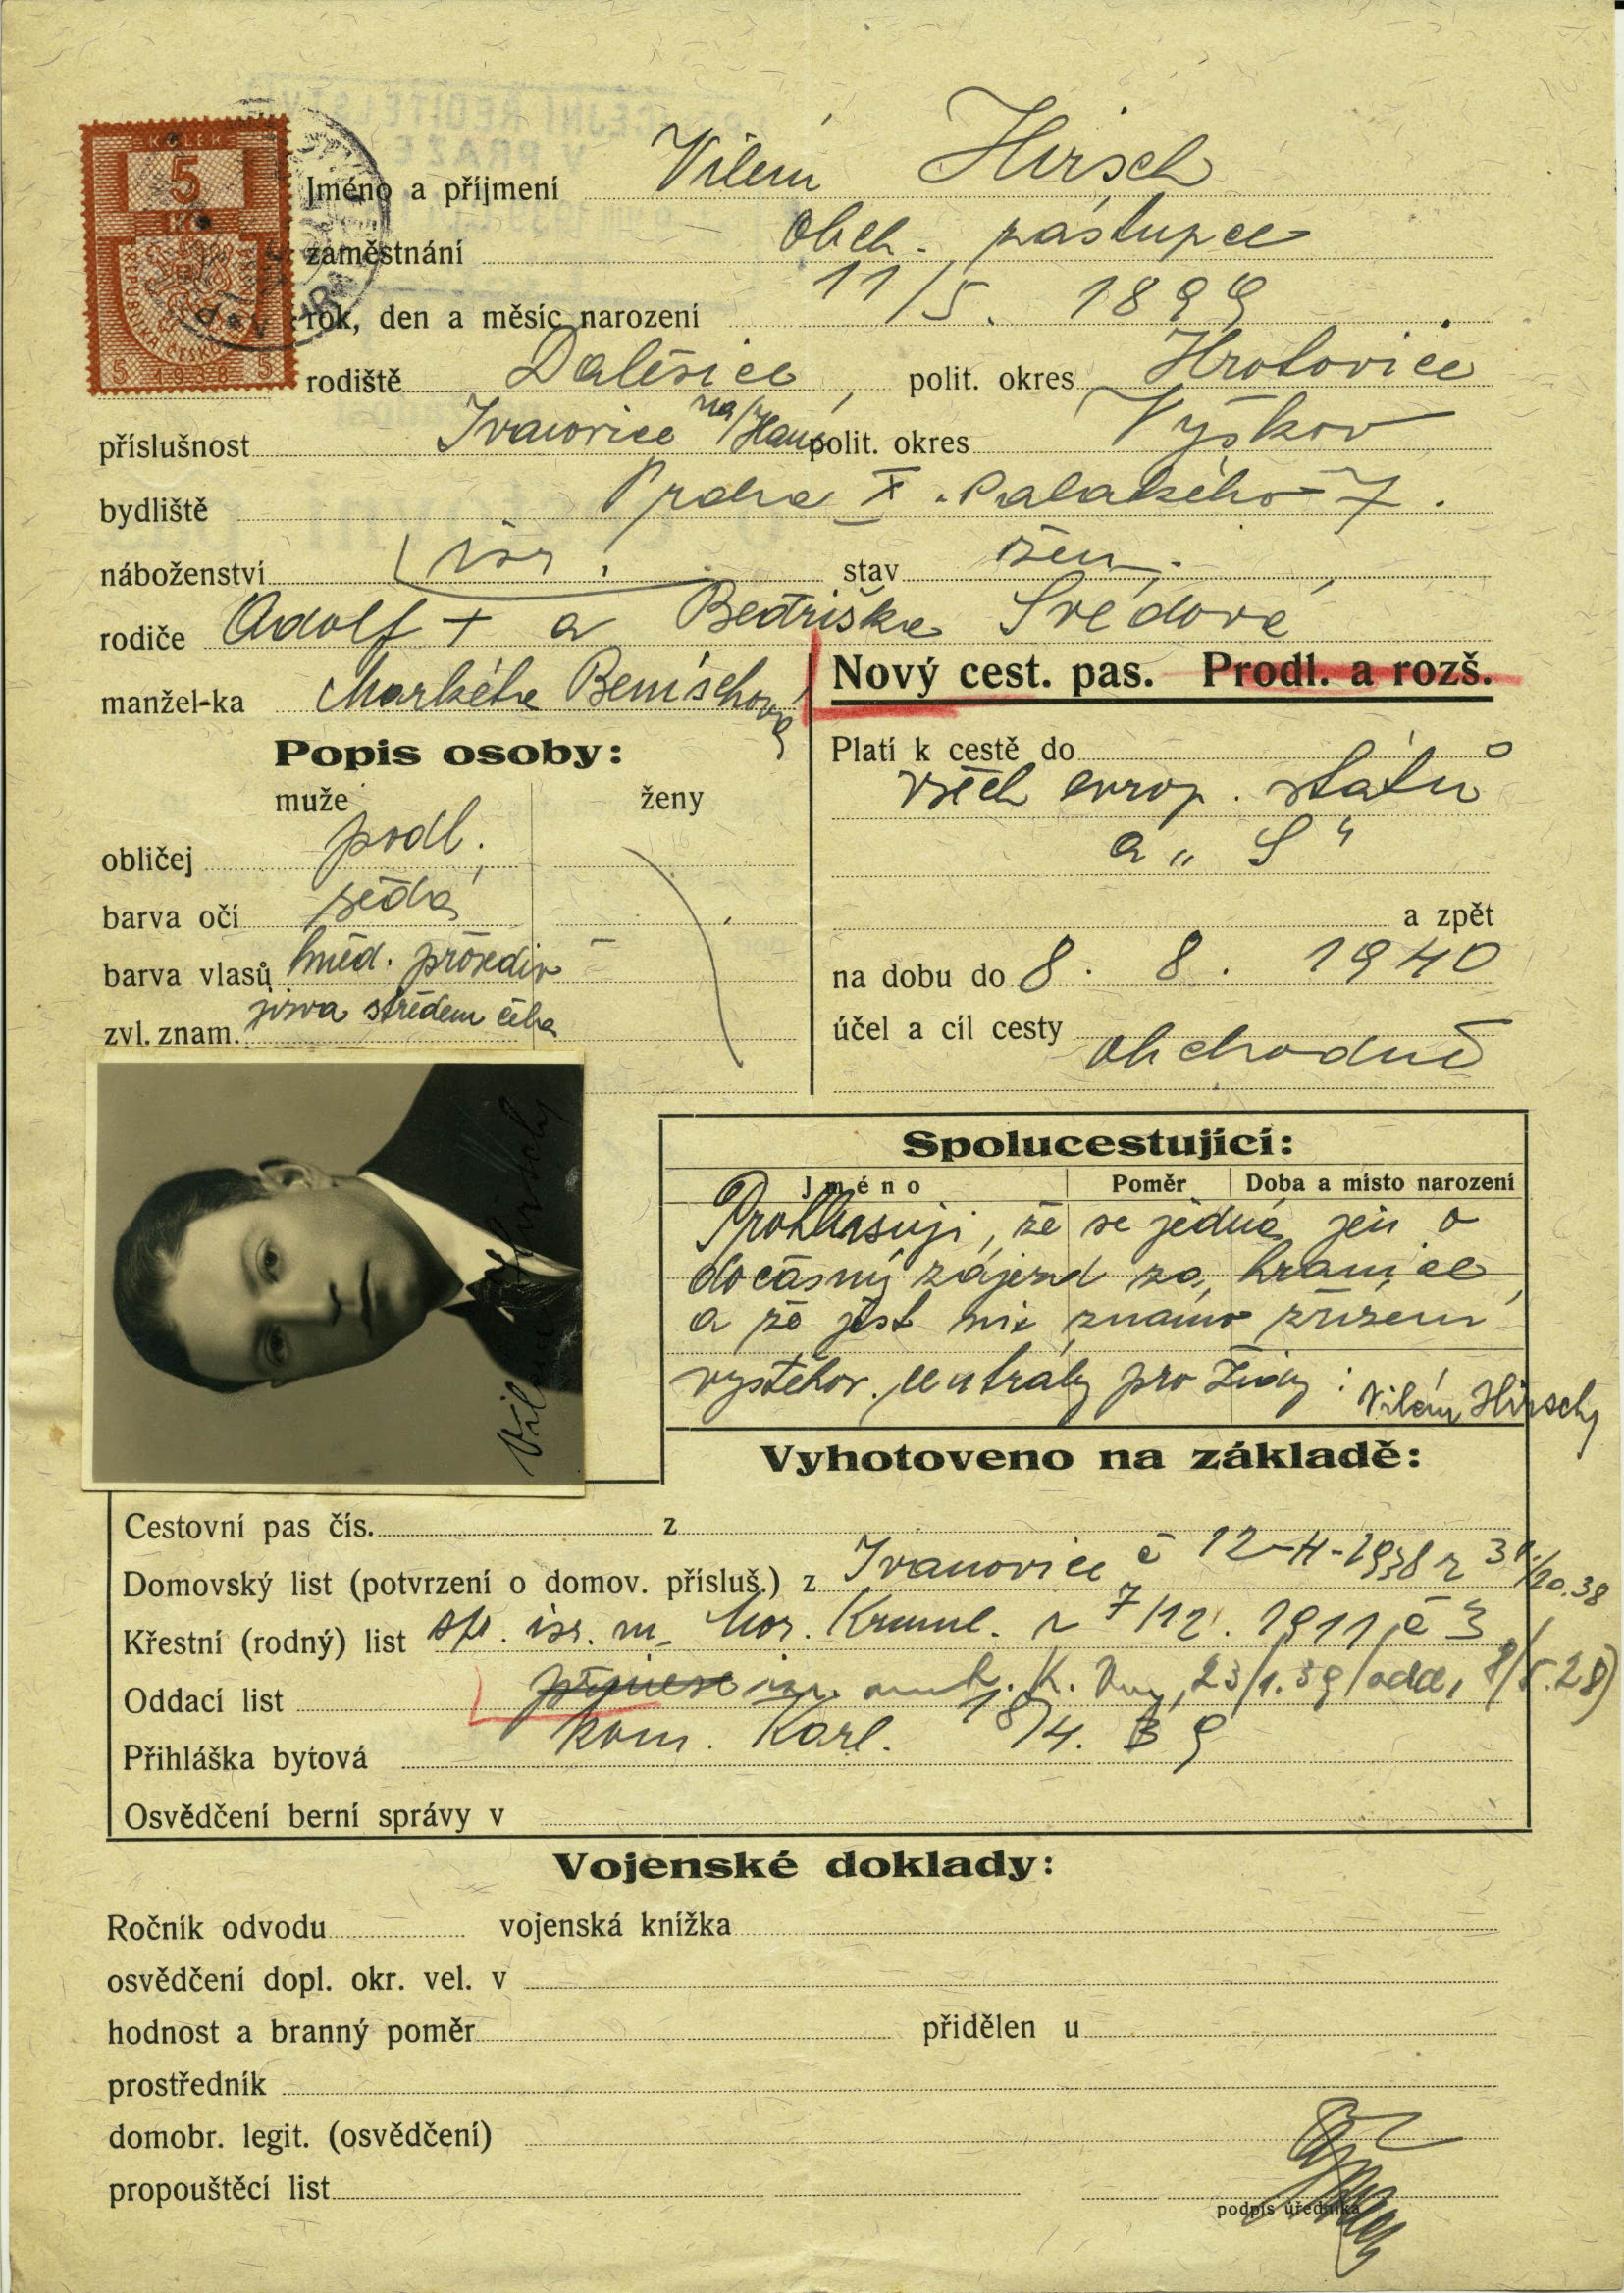 KOLEK
5
K
REPUBLIKA ČESKO
5 1938 5
Jméno a příjmení Vilém Hirsch
zaměstnání obch. zástupce
rok, den a měsíc narození 11/5. 1899
rodiště Dalešice, polit. okres Hrotovice
příslušnost Ivanovice na/Hané polit. okres Vyškov
bydliště Praha X. Palackého 7.
náboženství isr. stav žen.
rodiče Adolf + a Bedřiška Švédová
manžel-ka Markéta Benischová
Nový cest. pas. Prodl. a rozš.
Popis osoby:
muže ženy
obličej podl.
barva očí šedá
barva vlasů hněd. prošediv
zvl. znam. jizva středem čela
Platí k cestě do
všech evrop. států
a „S“
a zpět
na dobu do 8. 8. 1940
účel a cíl cesty obchodně
Vilém Hirsch
Spolucestující:
Jméno Poměr Doba a místo narození
Prohlašuji, že se jedná jen o
dočasný zájezd za hranice,
a že jest mi známo zřízení
vystěhov. centrály pro Židy: Vilém Hirsch
Vyhotoveno na základě:
Cestovní pas čís. z
Domovský list (potvrzení o domov. přísluš.) z Ivanovice č 12-H-1938 z
Křestní (rodný) list isr. m. Mor. Kruml. z 7/12. 1911 č 3
Oddací list přinese 23/1.39/odd. 8/5.28)
Přihláška bytová kom. Karl. 18/4. 39
Osvědčení berní správy v
Vojenské doklady:
Ročník odvodu vojenská knížka
osvědčení dopl. okr. vel. v
hodnost a branný poměr přidělen u
prostředník
domobr. legit. (osvědčení)
propouštěcí list
podpis úředníka